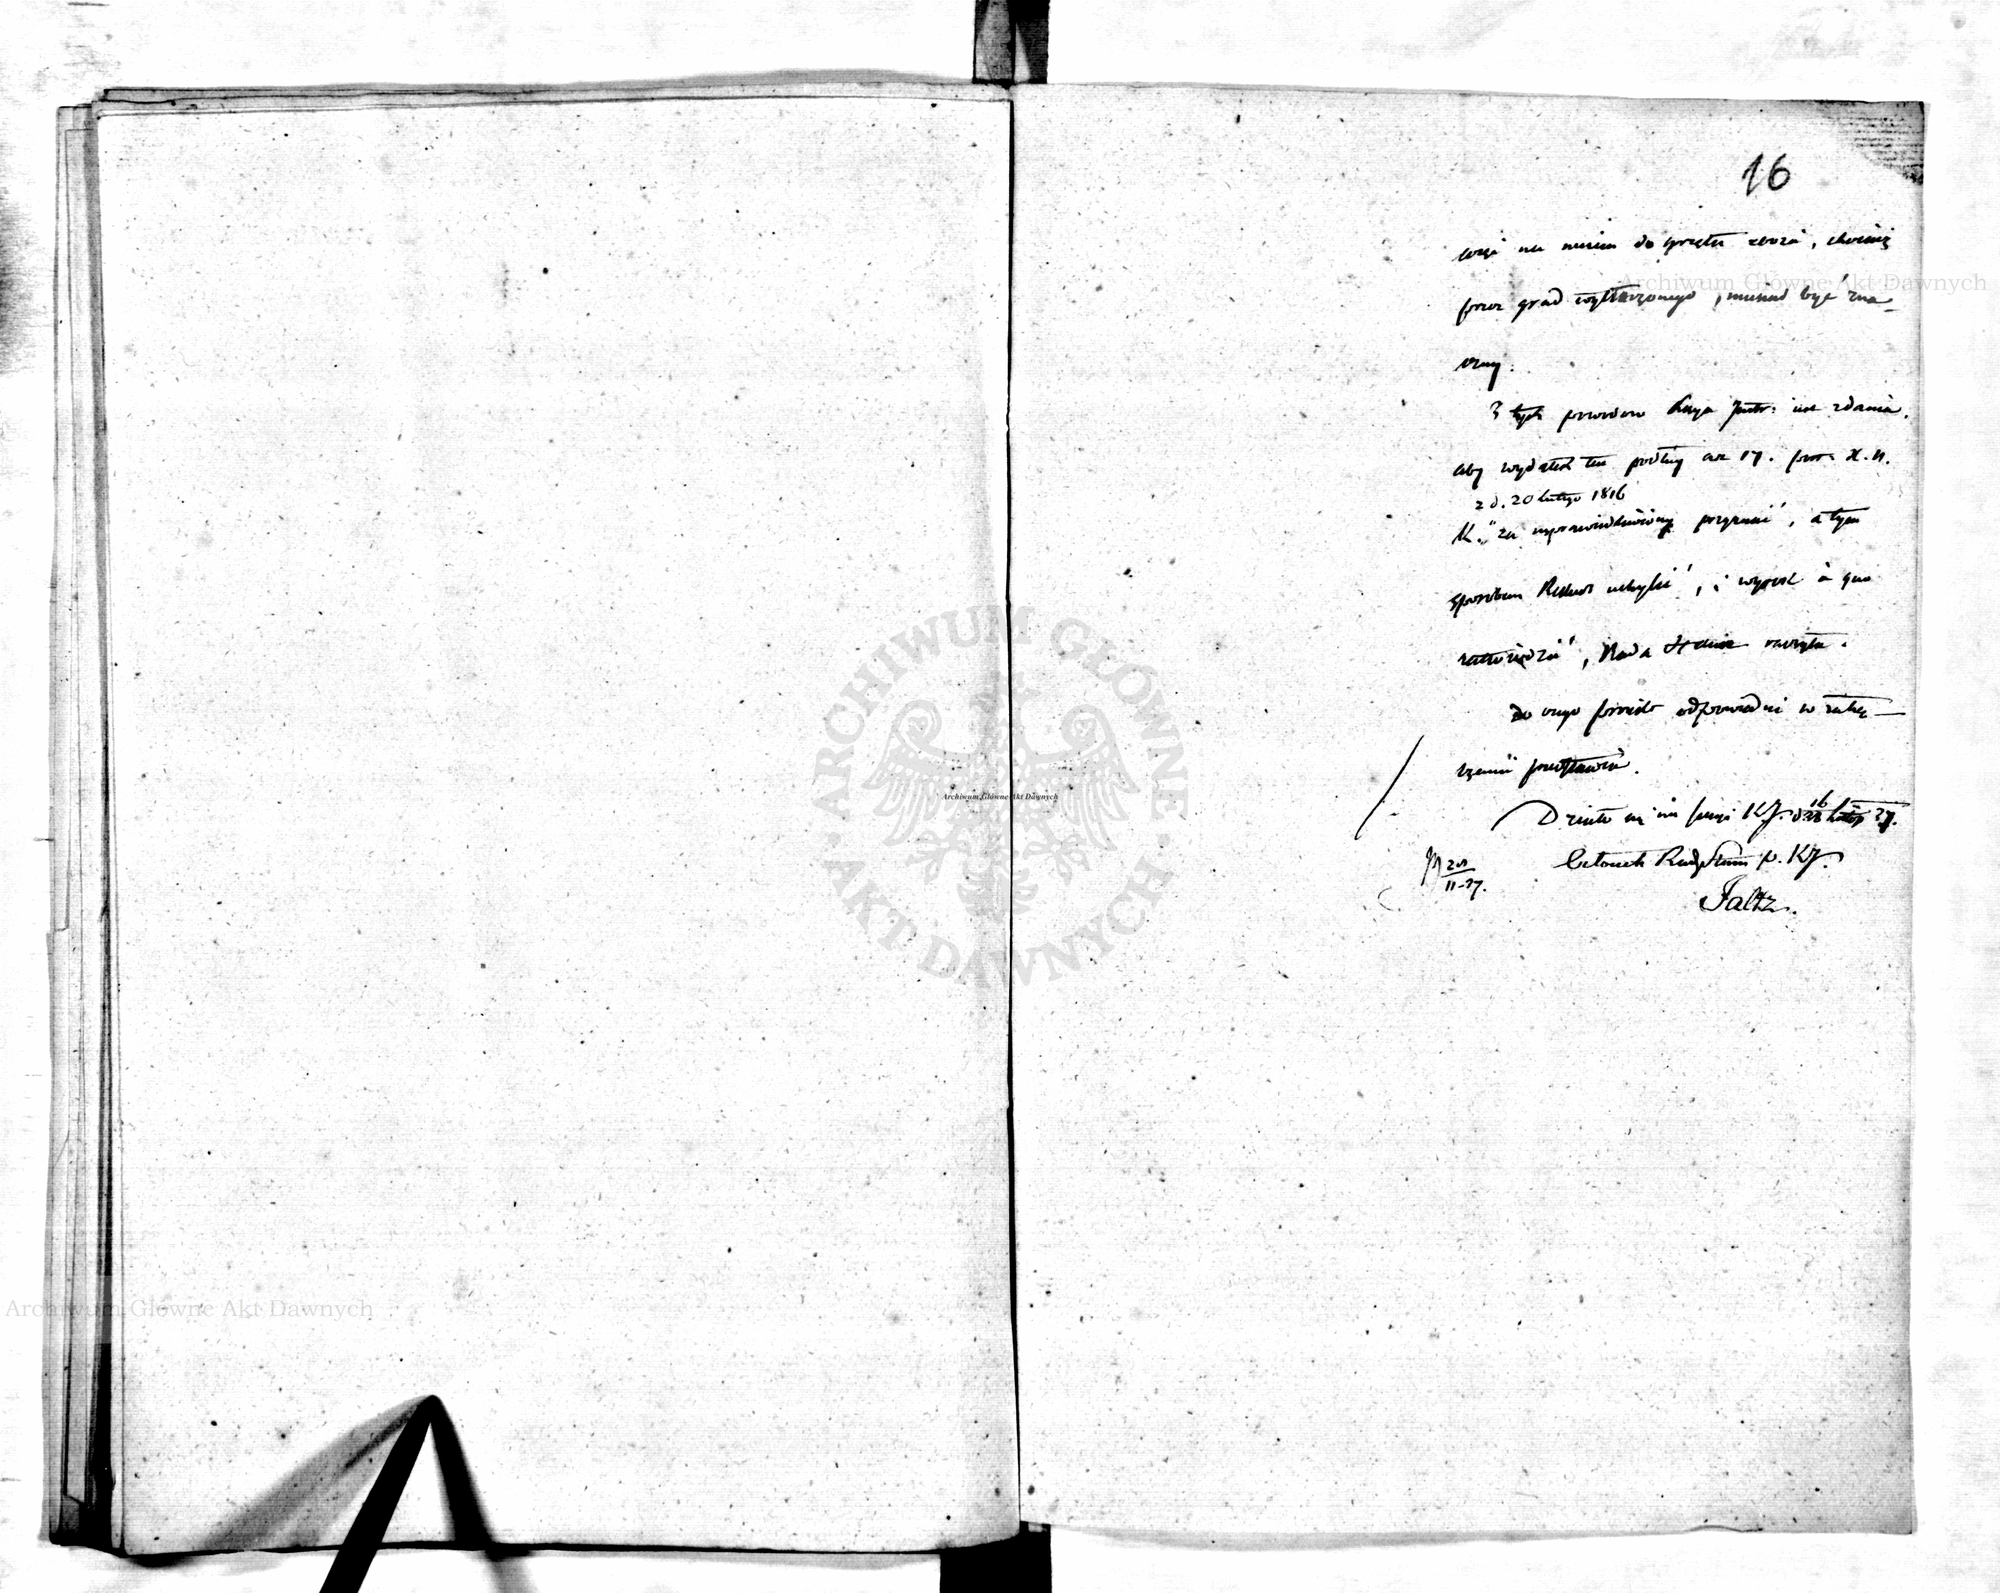 16
na do sprzętu zboża, chociaż
przez grad wytłuczonego, musiał być zna-
czny.
Z tych powodów Deleg. Instr: jest zdania,
aby wydatek ten podług art 17. post. X. N.
z d. 20 lutego 1816
K. „za usprawiedliwiony przyznać, a tym
sposobem Rekurs uchylić, i wyrok à quo
zatwierdzić, Rada Stanu raczyła.
Do czego projekt odpowiedni w załą-
czeniu przedstawia.
Działo się na sessji KJ. d. 16 lutego 27.
Członek Rady Stanu p. KJ.
20/11-27.
Faltz.
Archiwum Główne Akt Dawnych
Archiwum Główne Akt Dawnych
Archiwum Główne Akt Dawnych
ARCHIWUM GŁÓWNE · AKT DAWNYCH ·